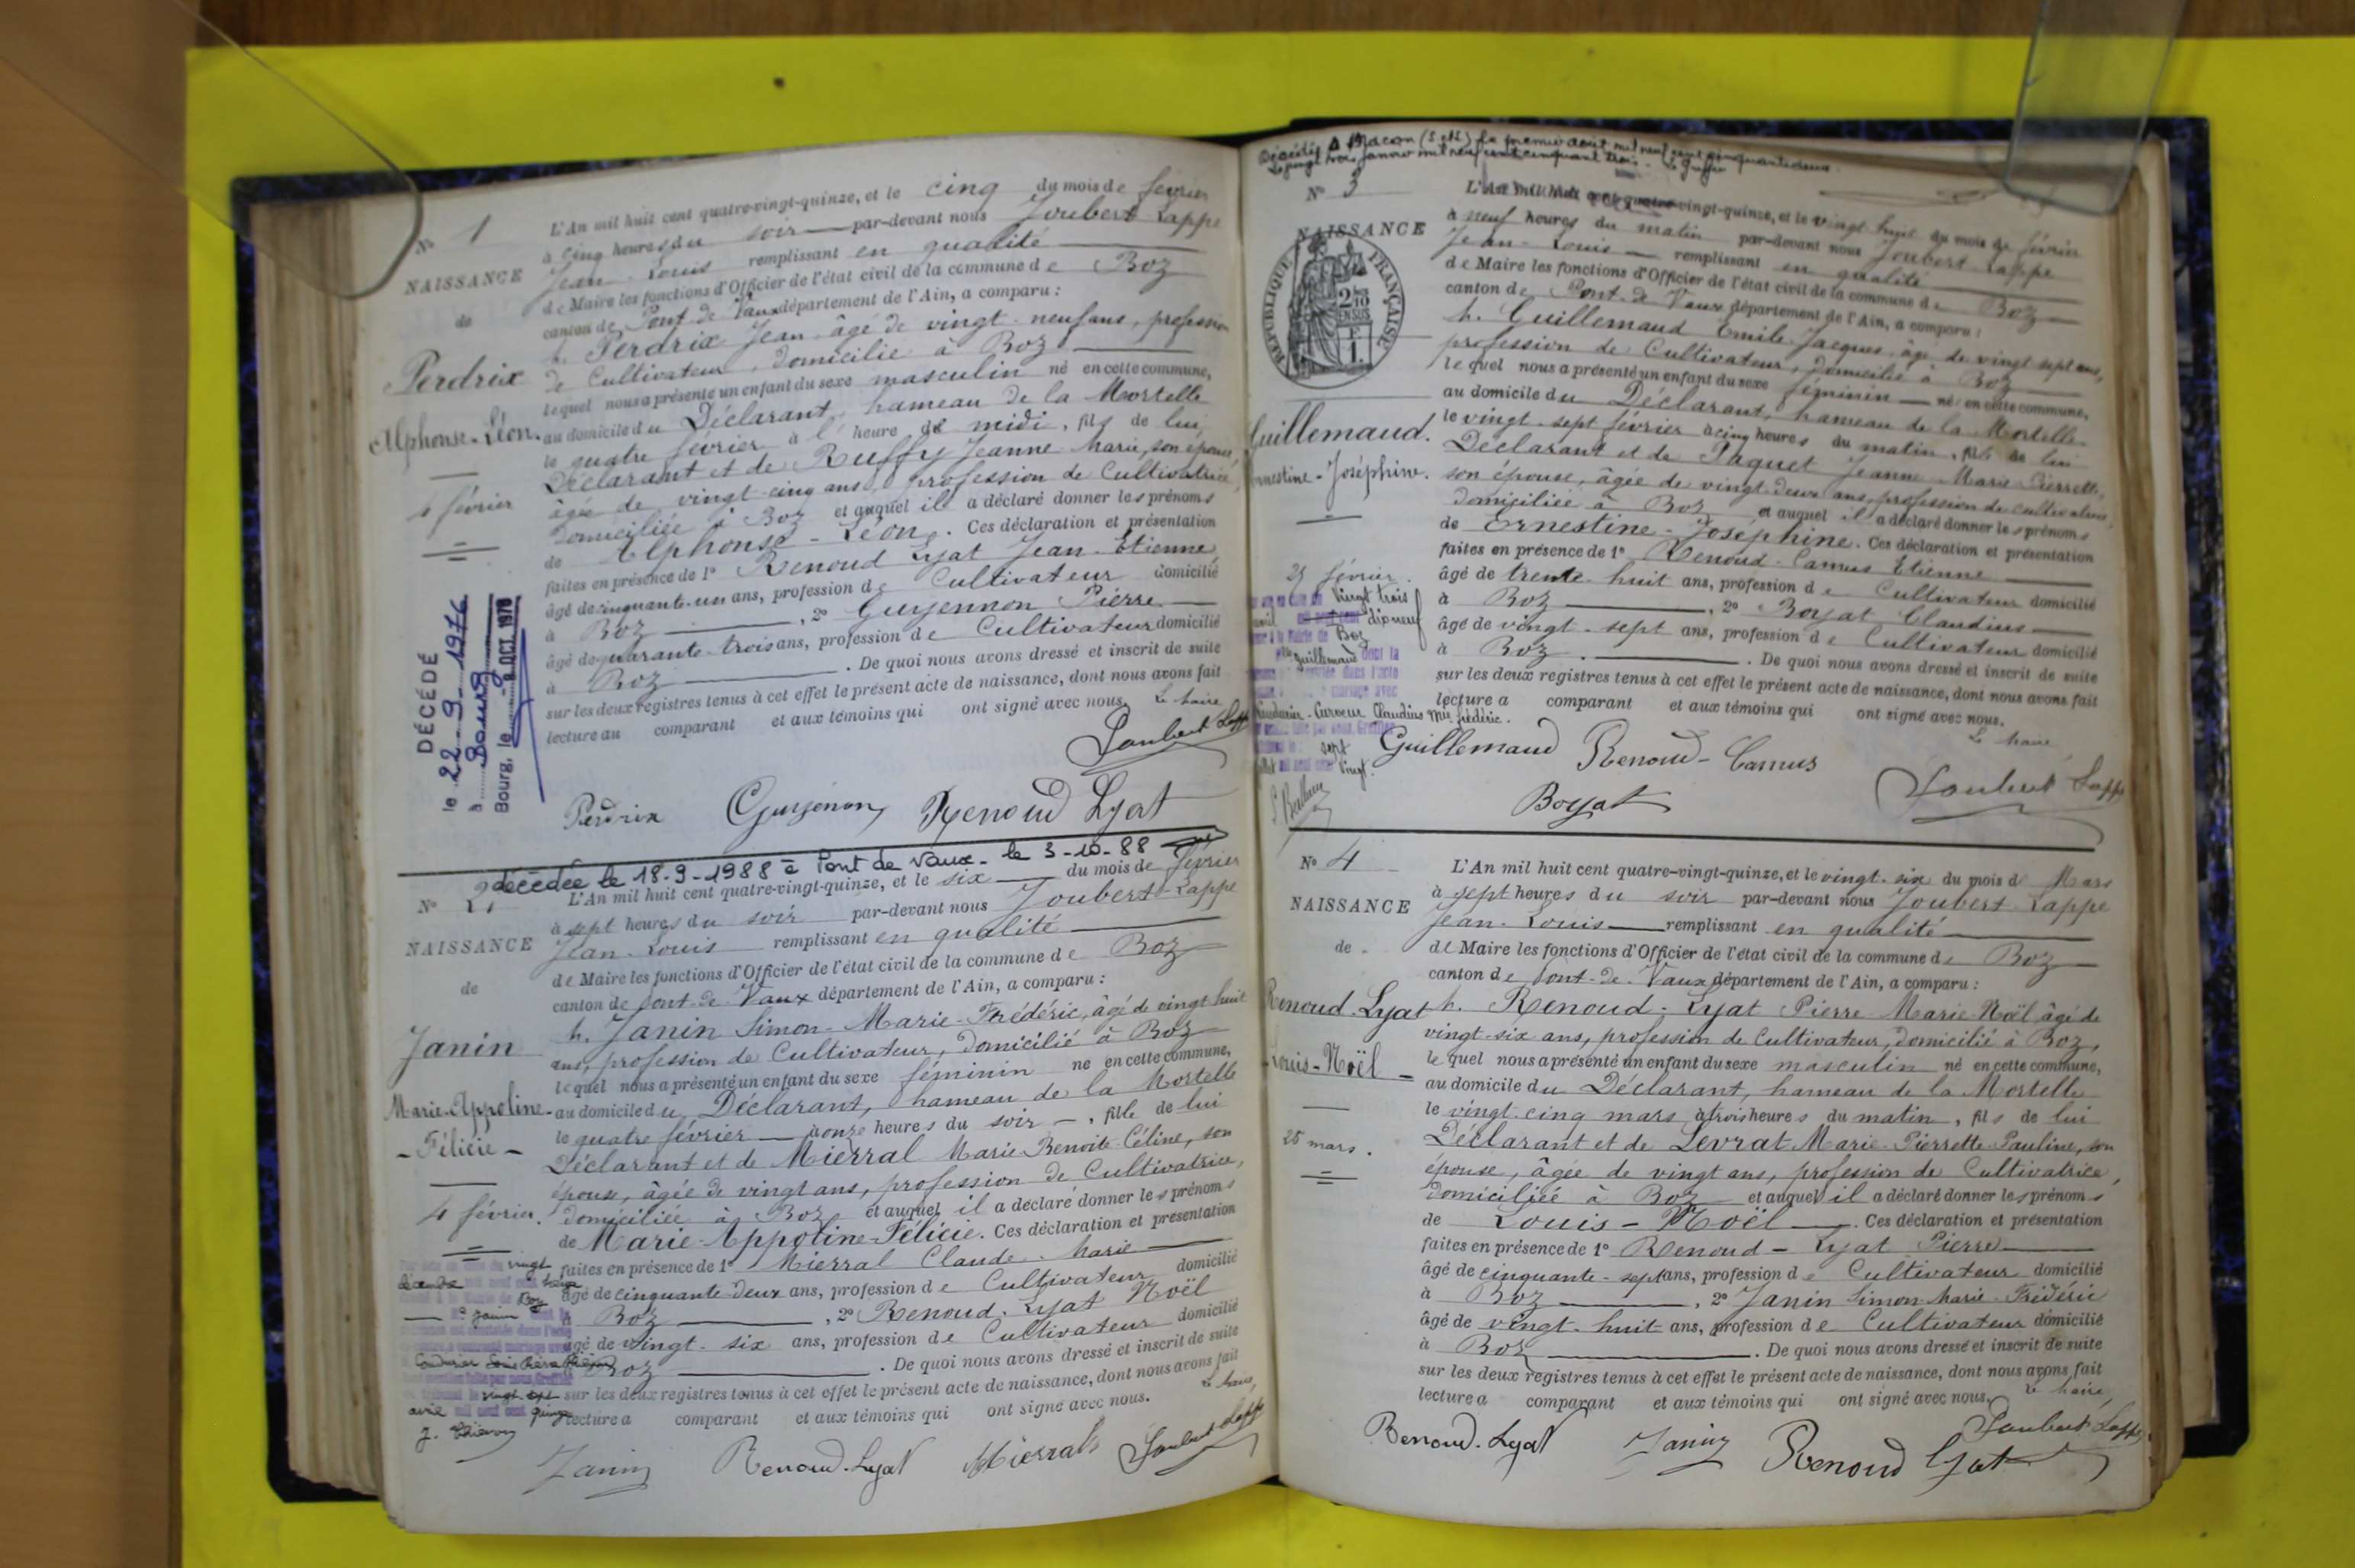 N° 1
NAISSANCE
de
Perdrix
Alphonse-Léon.
4 février
DÉCÉDÉ
le 22-9-1976
à Bourg
Bourg, le - 8 OCT. 1976
L'An mil huit cent quatre-vingt-quinze, et le cinq du mois de février
à cinq heures du soir par-devant nous Joubert Lappe
Jean-Louis remplissant en qualité
de Maire les fonctions d'Officier de l'état civil de la commune de Boz
canton de Pont-de-Vaux département de l'Ain, a comparu :
h. Perdrix Jean âgé de vingt-neuf ans, profession
de Cultivateur, domicilié à Boz
lequel nous a présenté un enfant du sexe masculin né en cette commune,
au domicile du Déclarant, hameau de la Mortelle
le quatre février à l'heure de midi, fils de lui
Déclarant et de Ruffy Jeanne Marie, son épouse,
âgée de vingt-cinq ans, profession de Cultivatrice,
domiciliée à Boz et auquel il a déclaré donner les prénoms
de Alphonse-Léon. Ces déclaration et présentation
faites en présence de 1° Renoud Lyat Jean-Etienne
âgé de cinquante-un ans, profession de Cultivateur domicilié
à Boz, 2° Guyennon Pierre
âgé de quarante-trois ans, profession de Cultivateur domicilié
à Boz. De quoi nous avons dressé et inscrit de suite
sur les deux registres tenus à cet effet le présent acte de naissance, dont nous avons fait
lecture au comparant et aux témoins qui ont signé avec nous. Le Maire
Joubert Lappe
Perdrix Guyenon Renoud Lyat
décédée le 18-9-1988 à Pont de Vaux - le 3-10-88
N° 2
NAISSANCE
de
Janin
Marie-Appoline-
- Félicie -
4 février.
L'An mil huit cent quatre-vingt-quinze, et le six du mois de février
à sept heures du soir par-devant nous Joubert-Lappe
Jean-Louis remplissant en qualité
de Maire les fonctions d'Officier de l'état civil de la commune de Boz
canton de Pont-de-Vaux département de l'Ain, a comparu :
h. Janin Simon-Marie-Frédéric, âgé de vingt huit
ans, profession de Cultivateur, domicilié à Boz
lequel nous a présenté un enfant du sexe féminin né en cette commune,
au domicile du Déclarant, hameau de la Mortelle
le quatre février à onze heures du soir -, fille de lui
Déclarant et de Mierral Marie Benoite Céline, son
épouse, âgée de vingt ans, profession de Cultivatrice,
domiciliée à Boz et auquel il a déclaré donner les prénoms
de Marie-Appoline-Félicie. Ces déclaration et présentation
faites en présence de 1° Mierral Claude-Marie
âgé de cinquante-deux ans, profession de Cultivateur domicilié
à Boz, 2° Renoud-Lyat Noël
âgé de vingt-six ans, profession de Cultivateur domicilié
à Boz. De quoi nous avons dressé et inscrit de suite
sur les deux registres tenus à cet effet le présent acte de naissance, dont nous avons fait
lecture a comparant et aux témoins qui ont signé avec nous. Le Maire,
Janin Renoud-Lyat Mierral Joubert Lappe
Décédée à Macon (S et L) le premier août mil neuf cent cinquante deux
Le vingt trois janvier mil neuf cent cinquante trois. Le Greffier
N° 3
NAISSANCE
RÉPUBLIQUE FRANÇAISE
Guillemaud.
Ernestine-Joséphine.
L'An mil huit cent quatre-vingt-quinze, et le vingt huit du mois de février
à neuf heures du matin par-devant nous Joubert Lappe
Jean-Louis remplissant en qualité
de Maire les fonctions d'Officier de l'état civil de la commune de Boz
canton de Pont-de-Vaux département de l'Ain, a comparu :
h. Guillemaud Emile-Jacques, âgé de vingt sept ans,
profession de Cultivateur, domicilié à Boz
lequel nous a présenté un enfant du sexe féminin né en cette commune,
au domicile du Déclarant, hameau de la Mortelle
le vingt-sept février à cinq heures du matin, fille de lui
Déclarant et de Paquet Jeanne-Marie-Pierrette,
son épouse, âgée de vingt-deux ans, profession de cultivatrice,
domiciliée à Boz et auquel il a déclaré donner les prénoms
de Ernestine-Joséphine. Ces déclaration et présentation
faites en présence de 1° Renoud-Camus Etienne
âgé de trente-huit ans, profession de Cultivateur domicilié
à Boz, 2° Boyat Claudius
âgé de vingt-sept ans, profession de Cultivateur domicilié
à Boz. De quoi nous avons dressé et inscrit de suite
sur les deux registres tenus à cet effet le présent acte de naissance, dont nous avons fait
lecture a comparant et aux témoins qui ont signé avec nous.
Le Maire
Guillemaud Renoud-Camus
Boyat Joubert Lappe
N° 4
NAISSANCE
de
Renoud-Lyat
Louis-Noël
25 mars.
L'An mil huit cent quatre-vingt-quinze, et le vingt-six du mois de Mars
à sept heures du soir par-devant nous Joubert Lappe
Jean-Louis remplissant en qualité
de Maire les fonctions d'Officier de l'état civil de la commune de Boz
canton de Pont-de-Vaux département de l'Ain, a comparu :
h. Renoud-Lyat Pierre Marie Noël âgé de
vingt-six ans, profession de Cultivateur, domicilié à Boz,
lequel nous a présenté un enfant du sexe masculin né en cette commune,
au domicile du Déclarant, hameau de la Mortelle
le vingt-cinq mars à trois heures du matin, fils de lui
Déclarant et de Levrat Marie-Pierrette-Pauline, son
épouse, âgée de vingt ans, profession de Cultivatrice,
domiciliée à Boz et auquel il a déclaré donner les prénoms
de Louis-Noël. Ces déclaration et présentation
faites en présence de 1° Renoud-Lyat Pierre
âgé de cinquante-sept ans, profession de Cultivateur domicilié
à Boz, 2° Janin Simon-Marie-Frédéric
âgé de vingt-huit ans, profession de Cultivateur domicilié
à Boz. De quoi nous avons dressé et inscrit de suite
sur les deux registres tenus à cet effet le présent acte de naissance, dont nous avons fait
lecture a comparant et aux témoins qui ont signé avec nous. Le Maire,
Renoud-Lyat Janin Renoud Lyat Joubert Lappe